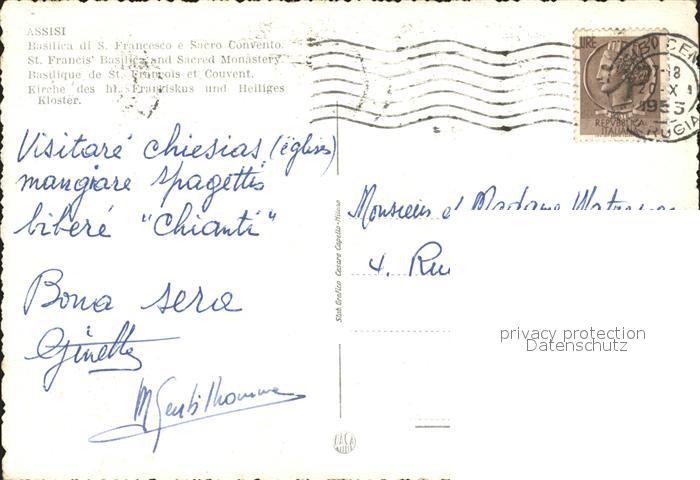 ASSISI
Basilica di S. Francesco e Sacro Convento.
St. Francis' Basilica and Sacred Monastery.
Basilique de St. François et Couvent.
Kirche des hl. Franziskus und Heiliges
Kloster.
LIRE
REPVBBLICA
ITALIANA
Visitaré chiesias (églises)
mangiare spagettis
biberé "Chianti"
Bona sera
Ginette
M Gentilhomme
Monsieur et Madame
4. Rue
Stab. Grafico Cesare Capello-Milano
privacy protection
Datenschutz